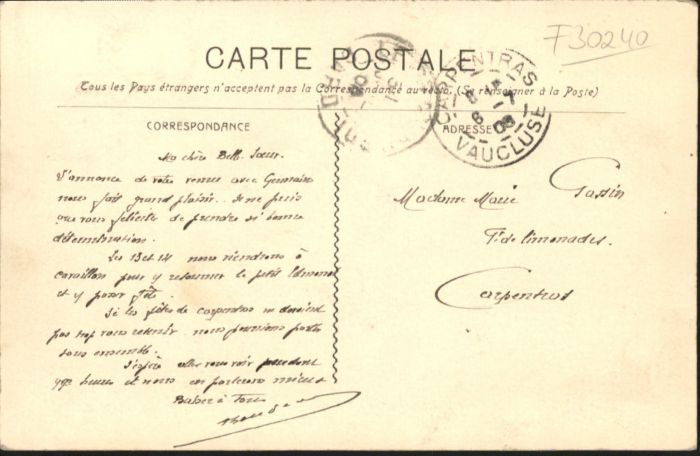 F30240
CARTE POSTALE
Tous les Pays étrangers n'acceptent pas la Correspondance au recto. (Se renseigner à la Poste)
CARPENTRAS
VAUCLUSE
CORRESPONDANCE
ADRESSE
Ma chère Belle Sœur.
L'annonce de votre venue avec Germaine
nous fait grand plaisir. Je ne puis
que vous féliciter de prendre si bonne
détermination.
Les 13 et 14 nous viendrons à
Cavaillon pour y retourner le petit Edmond
et y passer fête.
Si les fêtes de carpentras ne doivent
pas trop vous retenir nous pourrions partir
tous ensemble.
J'espère aller vous voir pendant
heures et nous en parlerons mieux
Baiser à Tous
Madame Marie Gassin
F. de limonades.
Carpentras